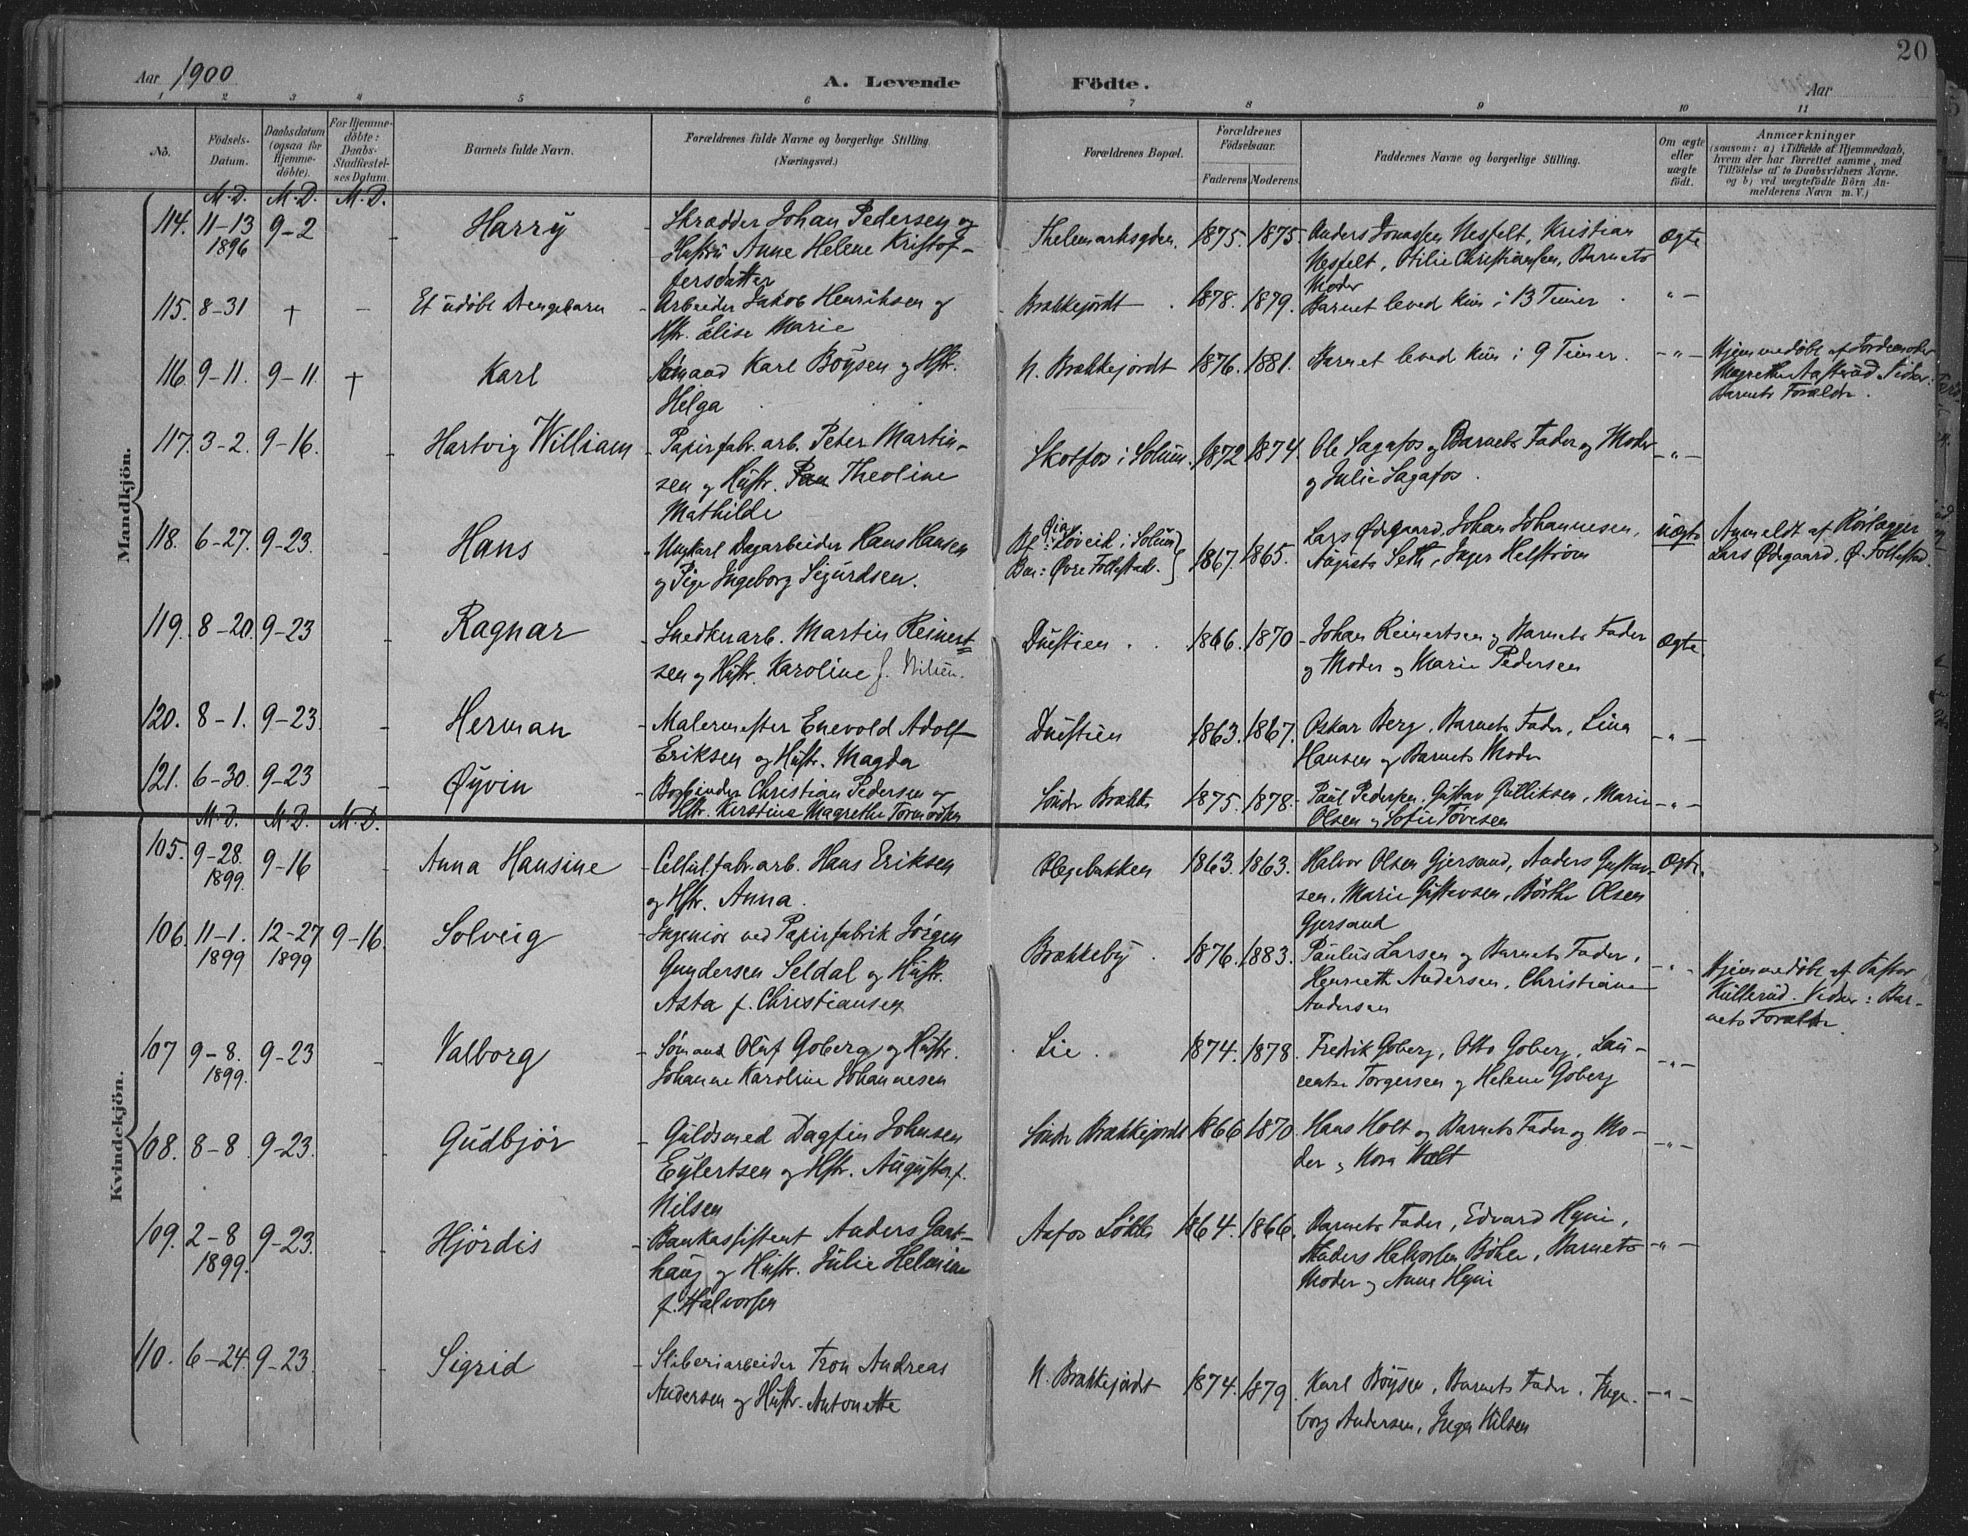 20
Aar 1900
A. Levende Födte.
Aar
1 2 3 4 5 6 7 8 9 10 11
No.
Födsels-Datum.
Daabsdatum (ogsaa for Hjemme-döbte).
For Hjemme-döbte: Daabs-Stadfæstel-ses Datum.
Barnets fulde Navn.
Forældrenes fulde Navne og borgerlige Stilling. (Næringsvei.)
Forældrenes Bopæl.
Forældrenes Födselsaar.
Faderens Moderens
Faddernes Navne og borgerlige Stilling.
Om ægte eller uægte födt.
Anmærkninger
(saasom: a) i Tilfælde af Hjemmedaab, hvem der har forrettet samme, med Tilföielse af to Daabsvidners Navne, og b) ved uægtefödte Börn An-melderens Navn m. V.)
Mandkjön.
M. D. M. D. M. D.
114. 11-13 1896 9-2 - Harry - Skrædder Johan Pedersen og
Hustru Anne Helene Kristof-
fersdatter
Thelemarksgden. 1875. 1875. Anders Jonassen Nesfelt, Kristian
Nesfelt, Otilie Christiansen, Barnets
Moder
Ægte
115. 8-31 + - Et udöbt Drengebarn - Arbeider Jakob Henriksen og
Hstr. Elise Marie
Brækkejordt. 1878. 1879. Barnet leved kun i 13 Timer. - " -
116. 9-11. 9-11 + Karl Sömand Karl Boysen og Hstr.
Helga
N. Brækkejordt 1876. 1881. Barnet leved kun i 9 Timer. - " -
Hjemmedöbt af Jordemoder
Barnets Foraldre.
117. 3-2. 9-16. - Hartvig William - Papirfabr. arb. Peter Martin-
sen og Hustr. Theoline
Mathilde
Skotfos i Solum. 1872 1874. Ole Sagafos og Barnets Fader og Moder
og Julie Sagafos.
- " -
118. 6-27. 9-23. - Hans - Ungkarl Dagarbeider Hans Hansen
og Pige Ingeborg Sigurdsen.
Löveid i Solum
Bar: Øvre Follestad. 1867. 1865. Lars Ødegaard, Johan Johannesen,
Seth, Inger Helström
uægte
Anmeldt af
Lars Ødegaard, Ø. Follestad.
119. 8-20. 9-23 - Ragnar - Snedkerarb. Martin Reinert-
sen og Hustr. Karoline f. Nilsen.
1866. 1870 - Johan Reinertsen og Barnets Fader
og Moder og Marie Pedersen
Ægte.
120. 8-1. 9-23. - Herman - Malermester Enevold Adolf
Eriksen og Hustr. Magda
1863. 1867. Oskar Berg, Barnets Fader, Lina
Hansen og Barnets Moder
- " -
121. 6-30. 9-23 - Øyvin - Bogbinder Christian Pedersen og
Hstr. Kerstine Magrethe
Söndr Brække 1875. 1878. - Paul Pedersen, Gustav Gulliksen, Marie
Olsen og Sofie Tovesen
- " -
Kvindekjön.
M. D. M. D. M. D.
105. 9-28. 1899. 9-16 Anna Hansine - Cellul. fabr. arb. Hans Eriksen
og Hstr. Anna.
1863. 1863. Halvor Olsen Gjersand, Anders Gustav-
sen, Marie Gustavsen, Börthe Olsen
Gjersand
Ægte.
106. 11-1. 1899 12-27 1899 9-16. Solveig - Ingeniör ved Papirfabrik Jörgen
Gundersen Seldal og Hustr.
Asta f. Christiansen
Brækkeby. 1876. 1883. Paulus Larsen og Barnets Fader,
Henriette Andersen, Christiane
Andersen
- " -
Hjemmedöbt af Pastor
Kullerud. Vidner: Bar-
nets Forældre.
107 9-8. 1899. 9-23 - Valborg - Sömand Oluf Goberg og Hustr.
Johanne Karoline Johannesen
Lie. 1874. 1878. Fredrik Goberg, Otto Goberg, Lau-
rentze Torgersen og Helene Goberg
- " -
108. 8-8. 9-23. - Gudbjör - Guldsmed Dagfin Johnsen
Eylertsen og Hstr. Augusta f.
Nilsen
Söndr Brækkejordt 1866 1870. Hans Holt og Barnets Fader og Mo-
der og Kora Holt
- " -
109. 2-8 1899. 9-23. - Hjördis - Bankassistent Anders Gart-
haug og Hustr. Julie Helmine
f. Halvorsen
Aafos Lökke 1864. 1866. Barnets Fader, Edvard Hyni,
Anders Halvorsen Böhle, Barnets
Moder og Anne Hyni
- " -
110. 6-24. 9-23. - Sigrid - Sliberiarbeider Tron Andreas
Andersen og Hustr. Antonette
N. Brækkejordt 1874. 1879. Karl Boysen, Barnets Fader, Inge-
borg Andersen, Inga Nilsen
- " -